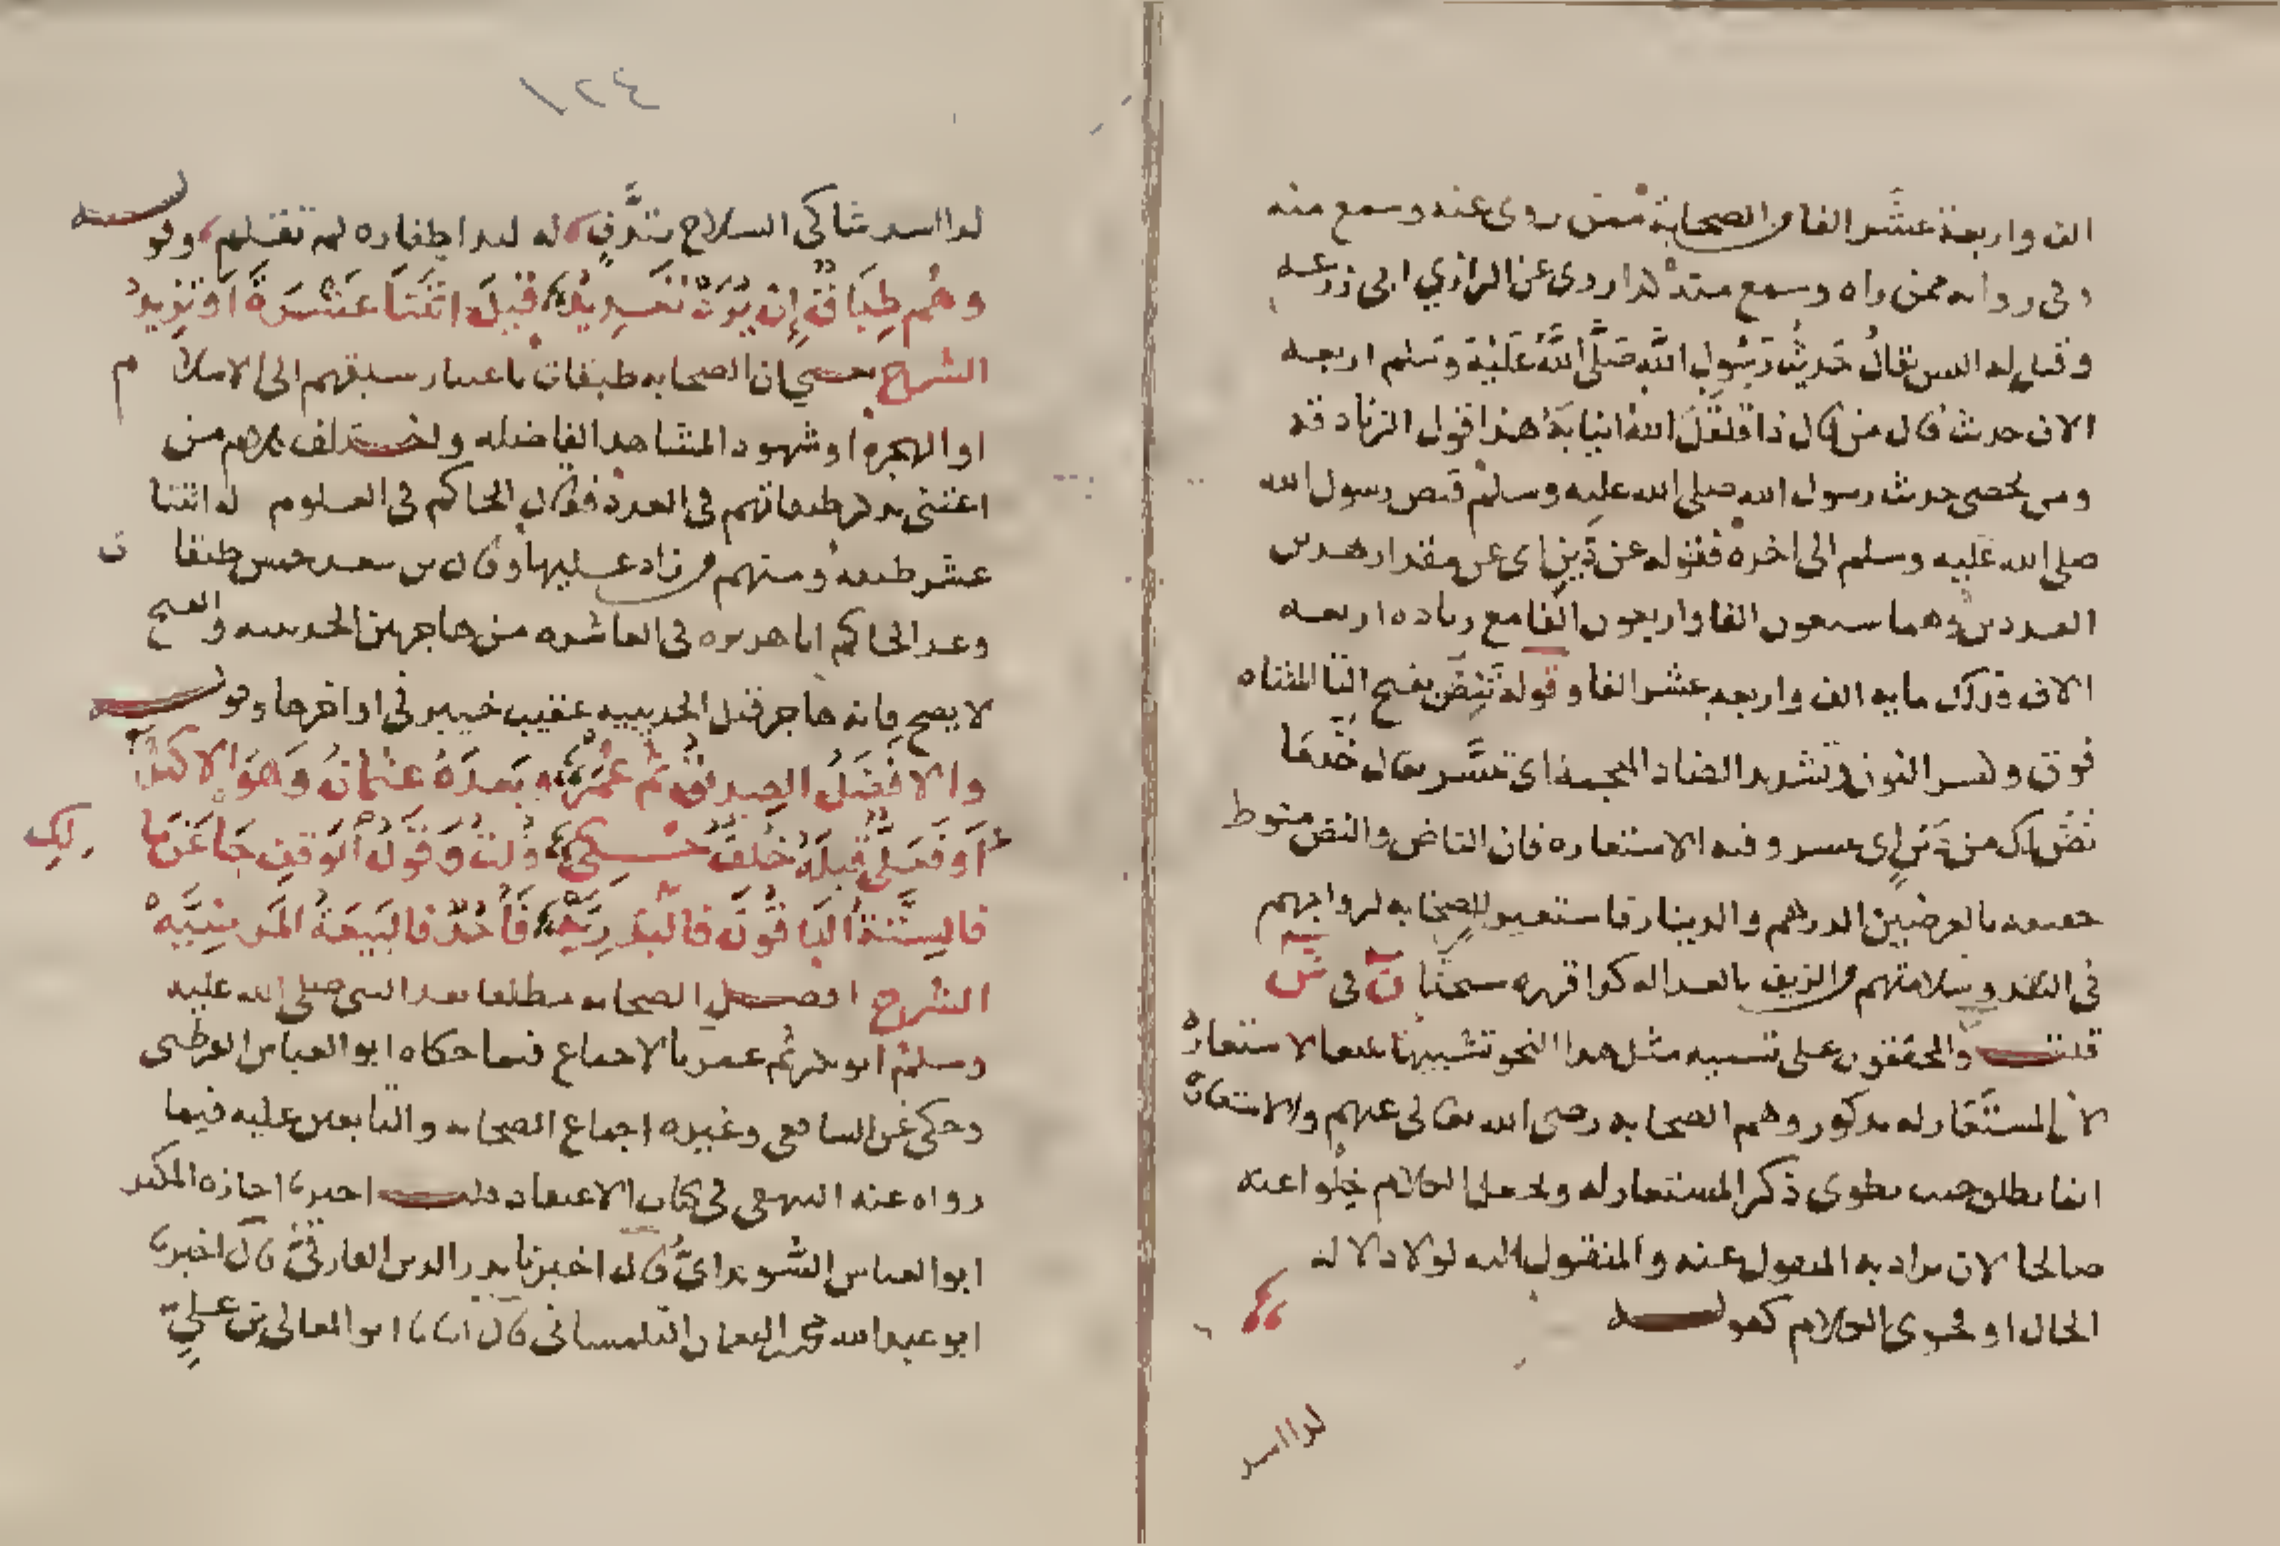 الف واربعة عشر الفا من الصحابة ممن روى عنه وسمع منه
وفي رواية ممن راه وسمع منه هذا روى عن الرازي ابي زرعه
وقيل له اليس يقال حديث رسول الله صلى الله عليه وسلم اربعه
الاف حديث قال من قال ذا قلقل الله انيابه هذا قول الزنادقه
ومن يحصي حديث رسول الله صلى الله عليه وسلم قبض رسول الله
صلى الله عليه وسلم الى اخره فقوله عن ذين اي عن مقدار هدين
العددين وهما سبعون الفا واربعون الفا مع زياده اربعه
الاف فذلك مايه الف واربعه عشر الفا وقوله تنض بفتح التا المثناه
فوق وكسر النون وتشديد الضاد المعجمة اي تيسر يقال خذ ما
نض لك من دين اي تيسر وفيه الاستعاره فان الناض والنض منوط
حقيقه بالعرضين الدرهم والدينار فاستعير للصحابه لرواجهم
في النقد وسلامتهم من الزيف بالعداله كما قرره شيخنا ن في ش
قلت والمحققون على تسميه مثل هذا النحو تشبيها بليغا لا استعارة
لان المستعار له مذكور وهم الصحابه رضي الله تعالى عنهم والاستعارة
انما تطلق حيث يطوى ذكر المستعار له ويجعل الكلام خلوا عنه
صالحا لان يراد به المنقول عنه والمنقول اليه لولا دلالة
الحال او فحوى الكلام كقوله
لدا اسد
لدا اسد شاكي السلاح مقذف له لبد اظفاره لم تقلم وقوله
وهم طباق إن يرد تعديد قيل اثنتا عشرة او تزيد
الشرح يعني ان الصحابه طبقات باعتبار سبقهم الى الاسلام
او الهجره او شهود المشاهد الفاضله واختلف كلام من
اعتنى بذكر طبقاتهم في العدد فقال الحاكم في العلوم له اثنتا
عشر طبقه ومنهم من زاد عليها وقال بن سعد خمس طبقات
وعد الحاكم ابا هريره في العاشره من هاجر بين الحديبيه والفتح
لا يصح فانه هاجر قبل الحديبيه عقيب خيبر في اواخرها وقوله
والافضل الصديق ثم عمر وبعده عثمان وهو الاكثر
او فعلي قبله خلف حكي قلت وقول الوقف جا عن مالك
فالستة الباقون فالبدريه فأحد فالبيعة المرضيه
الشرح افضل الصحابه مطلقا بعد النبي صلى الله عليه
وسلم ابو بكر ثم عمر بالاجماع فيما حكاه ابو العباس القرطبي
وحكي عن الشافعي وغيره اجماع الصحابه والتابعين عليه فيما
رواه عنه البيهقي في كتاب الاعتقاد قلت اخبرنا اجازه المكثر
ابو العباس الشويداي قال اخبرنا بدر الدين الفارقي قال اخبرنا
ابو عبد الله محمد بن النعمان التلمساني قال انبانا ابو المعالي بن علي